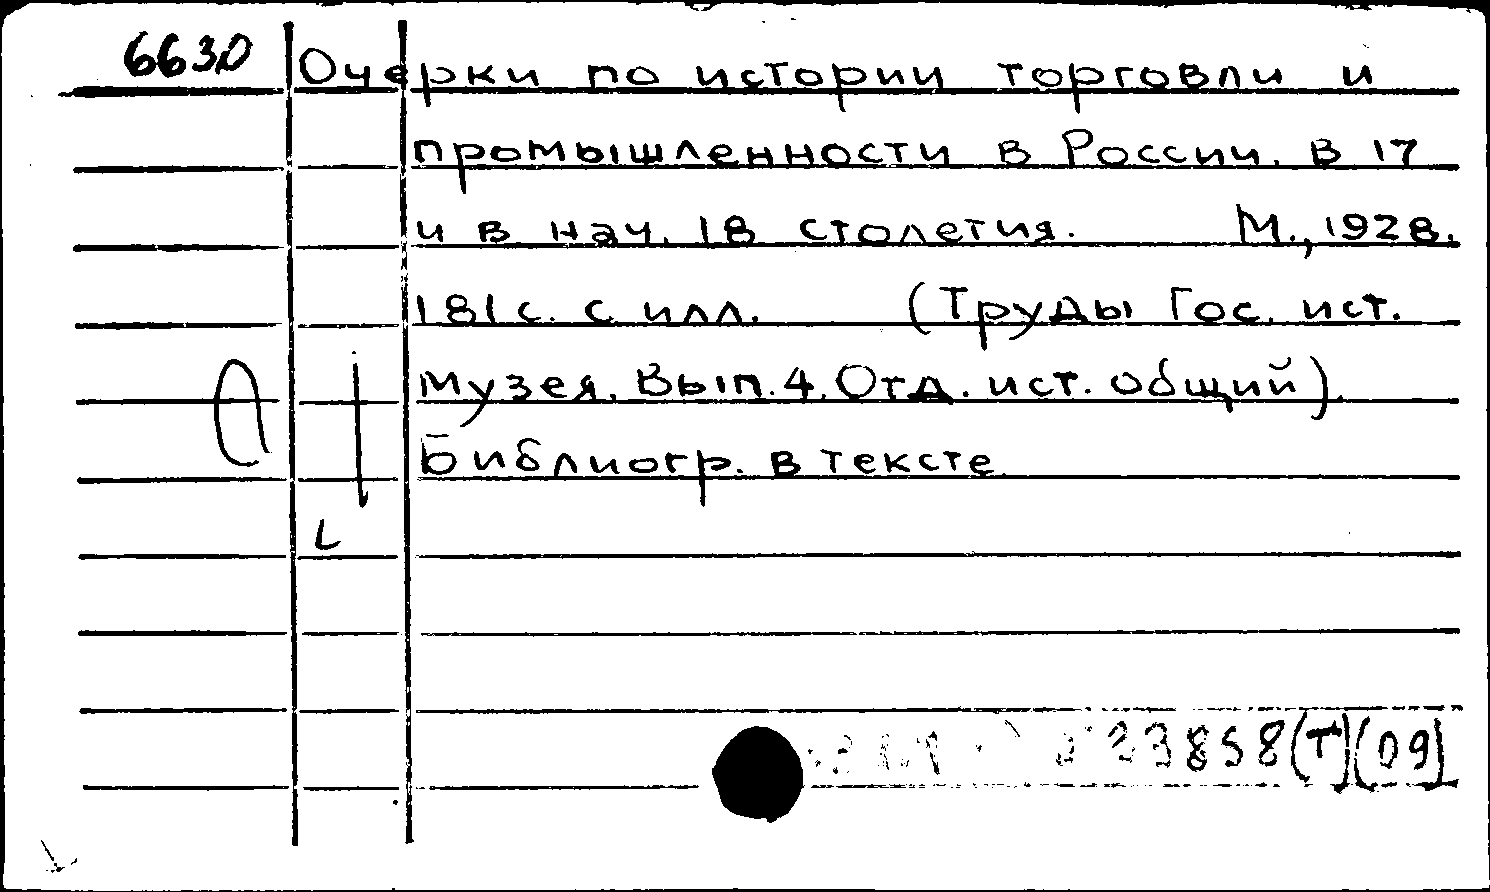 6630 Очерки по истории торговли и
промышленности в России. в 17
и в нач. 18 столетия. М., 1928.
181с. с илл. (Труды Гос. ист.
музея. Вып. 4. Отд. ист. общий).
Библиогр. в тексте
L
23858(Т)(09)